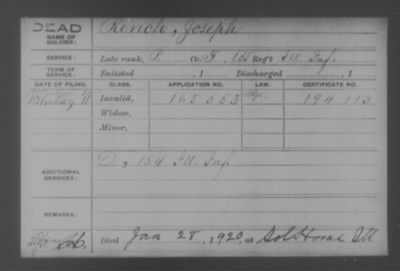 DEAD
NAME OF SOLDIER: Rench, Joseph
SERVICE: Late rank, P. Co. F, 133 Reg't Ill Inf.
TERM OF SERVICE: Enlisted , 1 Discharged , 1
DATE OF FILING. CLASS. APPLICATION NO. LAW. CERTIFICATE NO.
Invalid, 165 353 194 113
Widow,
Minor,
ADDITIONAL SERVICES: D, 154 Ill. Inf.
REMARKS:
Died Jan 28, 1920, at Sol Home Ill